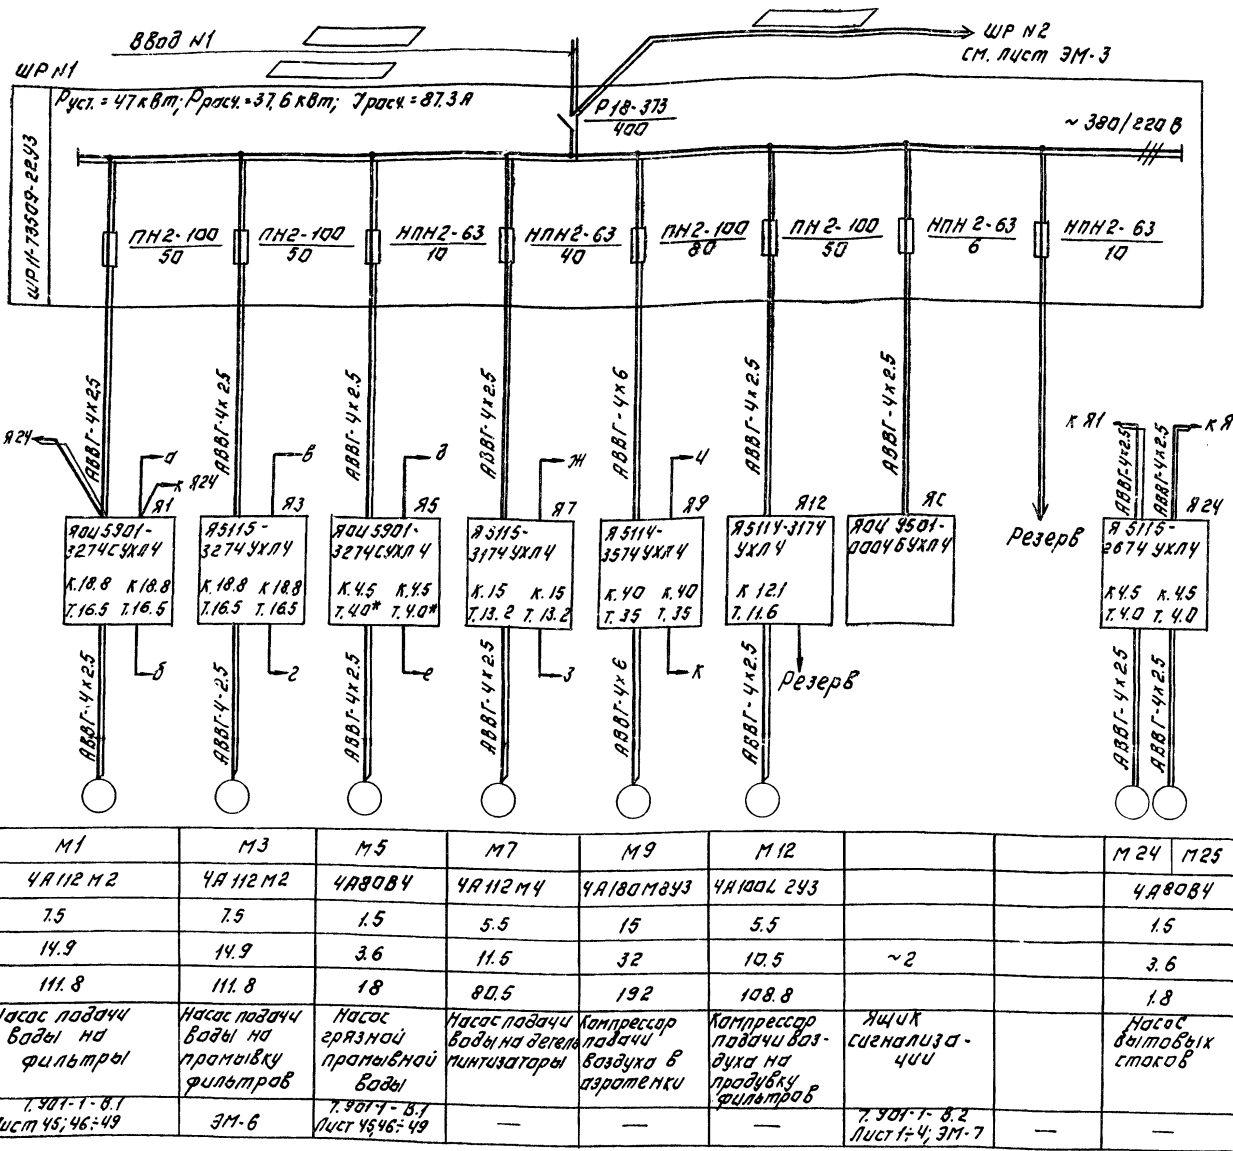 Ввод N1
ШР N2
см. лист ЭМ-3
ШР N1
Руст. = 47 кВт; Ррасч. = 37,6 кВт; Iрасч. = 87.3 А
Р18-373
400
~ 380/220 В
ШР11-73509-22У3
ПН2-100
50
ПН2-100
50
НПН2-63
10
НПН2-63
40
ПН2-100
80
ПН2-100
50
НПН2-63
6
НПН2-63
10
АВВГ-4х2.5
АВВГ-4х2.5
АВВГ-4х2.5
АВВГ-4х2.5
АВВГ-4х6
АВВГ-4х2.5
АВВГ-4х2.5
Я24
а
к Я24
в
д
ж
и
к Я1
к Я
АВВГ-4х2.5
АВВГ-4х2.5
Я1
Я3
Я5
Я7
Я9
Я12
ЯС
Резерв
Я24
ЯОИ5901-
3274СУХЛ4
К.18.8 К18.8
Т.16.5 Т.16.5
Я5115-
3274УХЛ4
К.18.8 К18.8
Т.16.5 Т.16.5
ЯОИ5901-
3274СУХЛ4
К.4.5 К.4.5
Т.4.0* Т.4.0*
Я5115-
3174УХЛ4
К.15 К.15
Т.13.2 Т.13.2
Я5114-
3574УХЛ4
К.40 К.40
Т.35 Т.35
Я5114-3174
УХЛ4
К 12.1
Т.11.6
ЯОИ 9501-
0004БУХЛ4
Я 5115-
2674 УХЛ4
К4.5 К.4.5
Т.4.0 Т.4.0
б
г
е
з
к
Резерв
АВВГ-4х2.5
АВВГ-4-2.5
АВВГ-4х2.5
АВВГ-4х2.5
АВВГ-4х6
АВВГ-4х2.5
АВВГ-4х2.5
АВВГ-4х2.5
М1 М3 М5 М7 М9 М12 М24 М25
4А112М2 4А112М2 4А80В4 4А112М4 4А180М8У3 4А100L2У3 4А80В4
7.5 7.5 1.5 5.5 15 5.5 1.5
14.9 14.9 3.6 11.5 32 10.5 ~2 3.6
111.8 111.8 18 80.5 192 108.8 1.8
Насос подачи
воды на
фильтры
Насос подачи
воды на
промывку
фильтров
Насос
грязной
промывной
воды
Насос подачи
воды на дегель
минтизаторы
Компрессор
подачи
воздуха в
аэротенки
Компрессор
подачи воз-
духа на
продувку
фильтров
Ящик
сигнализа-
ции
Насос
бытовых
стоков
7.901-1-В.1
Лист 45; 46÷49
ЭМ-6
7.901-1-В.1
Лист 45,46÷49
—
—
—
7.901-1-В.2
Лист 1÷4; ЭМ-7
—
—